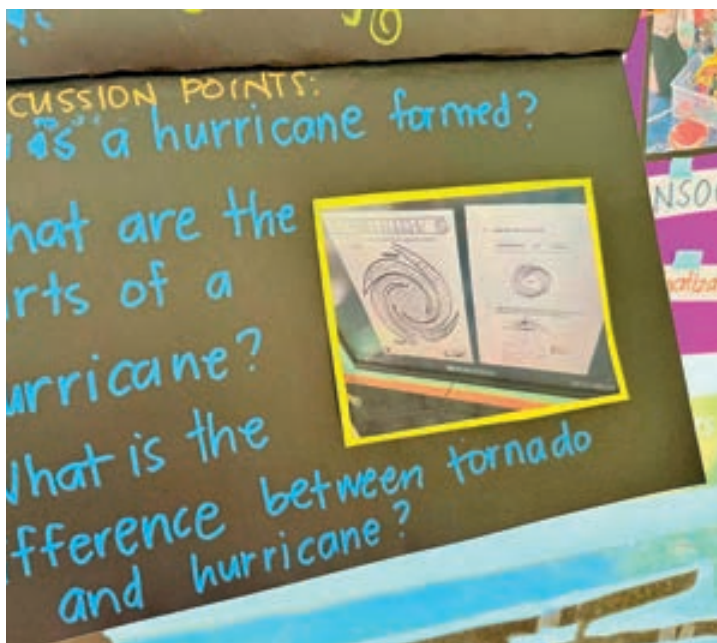 CUSSION POINTS:
is a hurricane formed?
hat are the
rts of a
urricane?
What is the
fference between tornado
and hurricane?
NSO